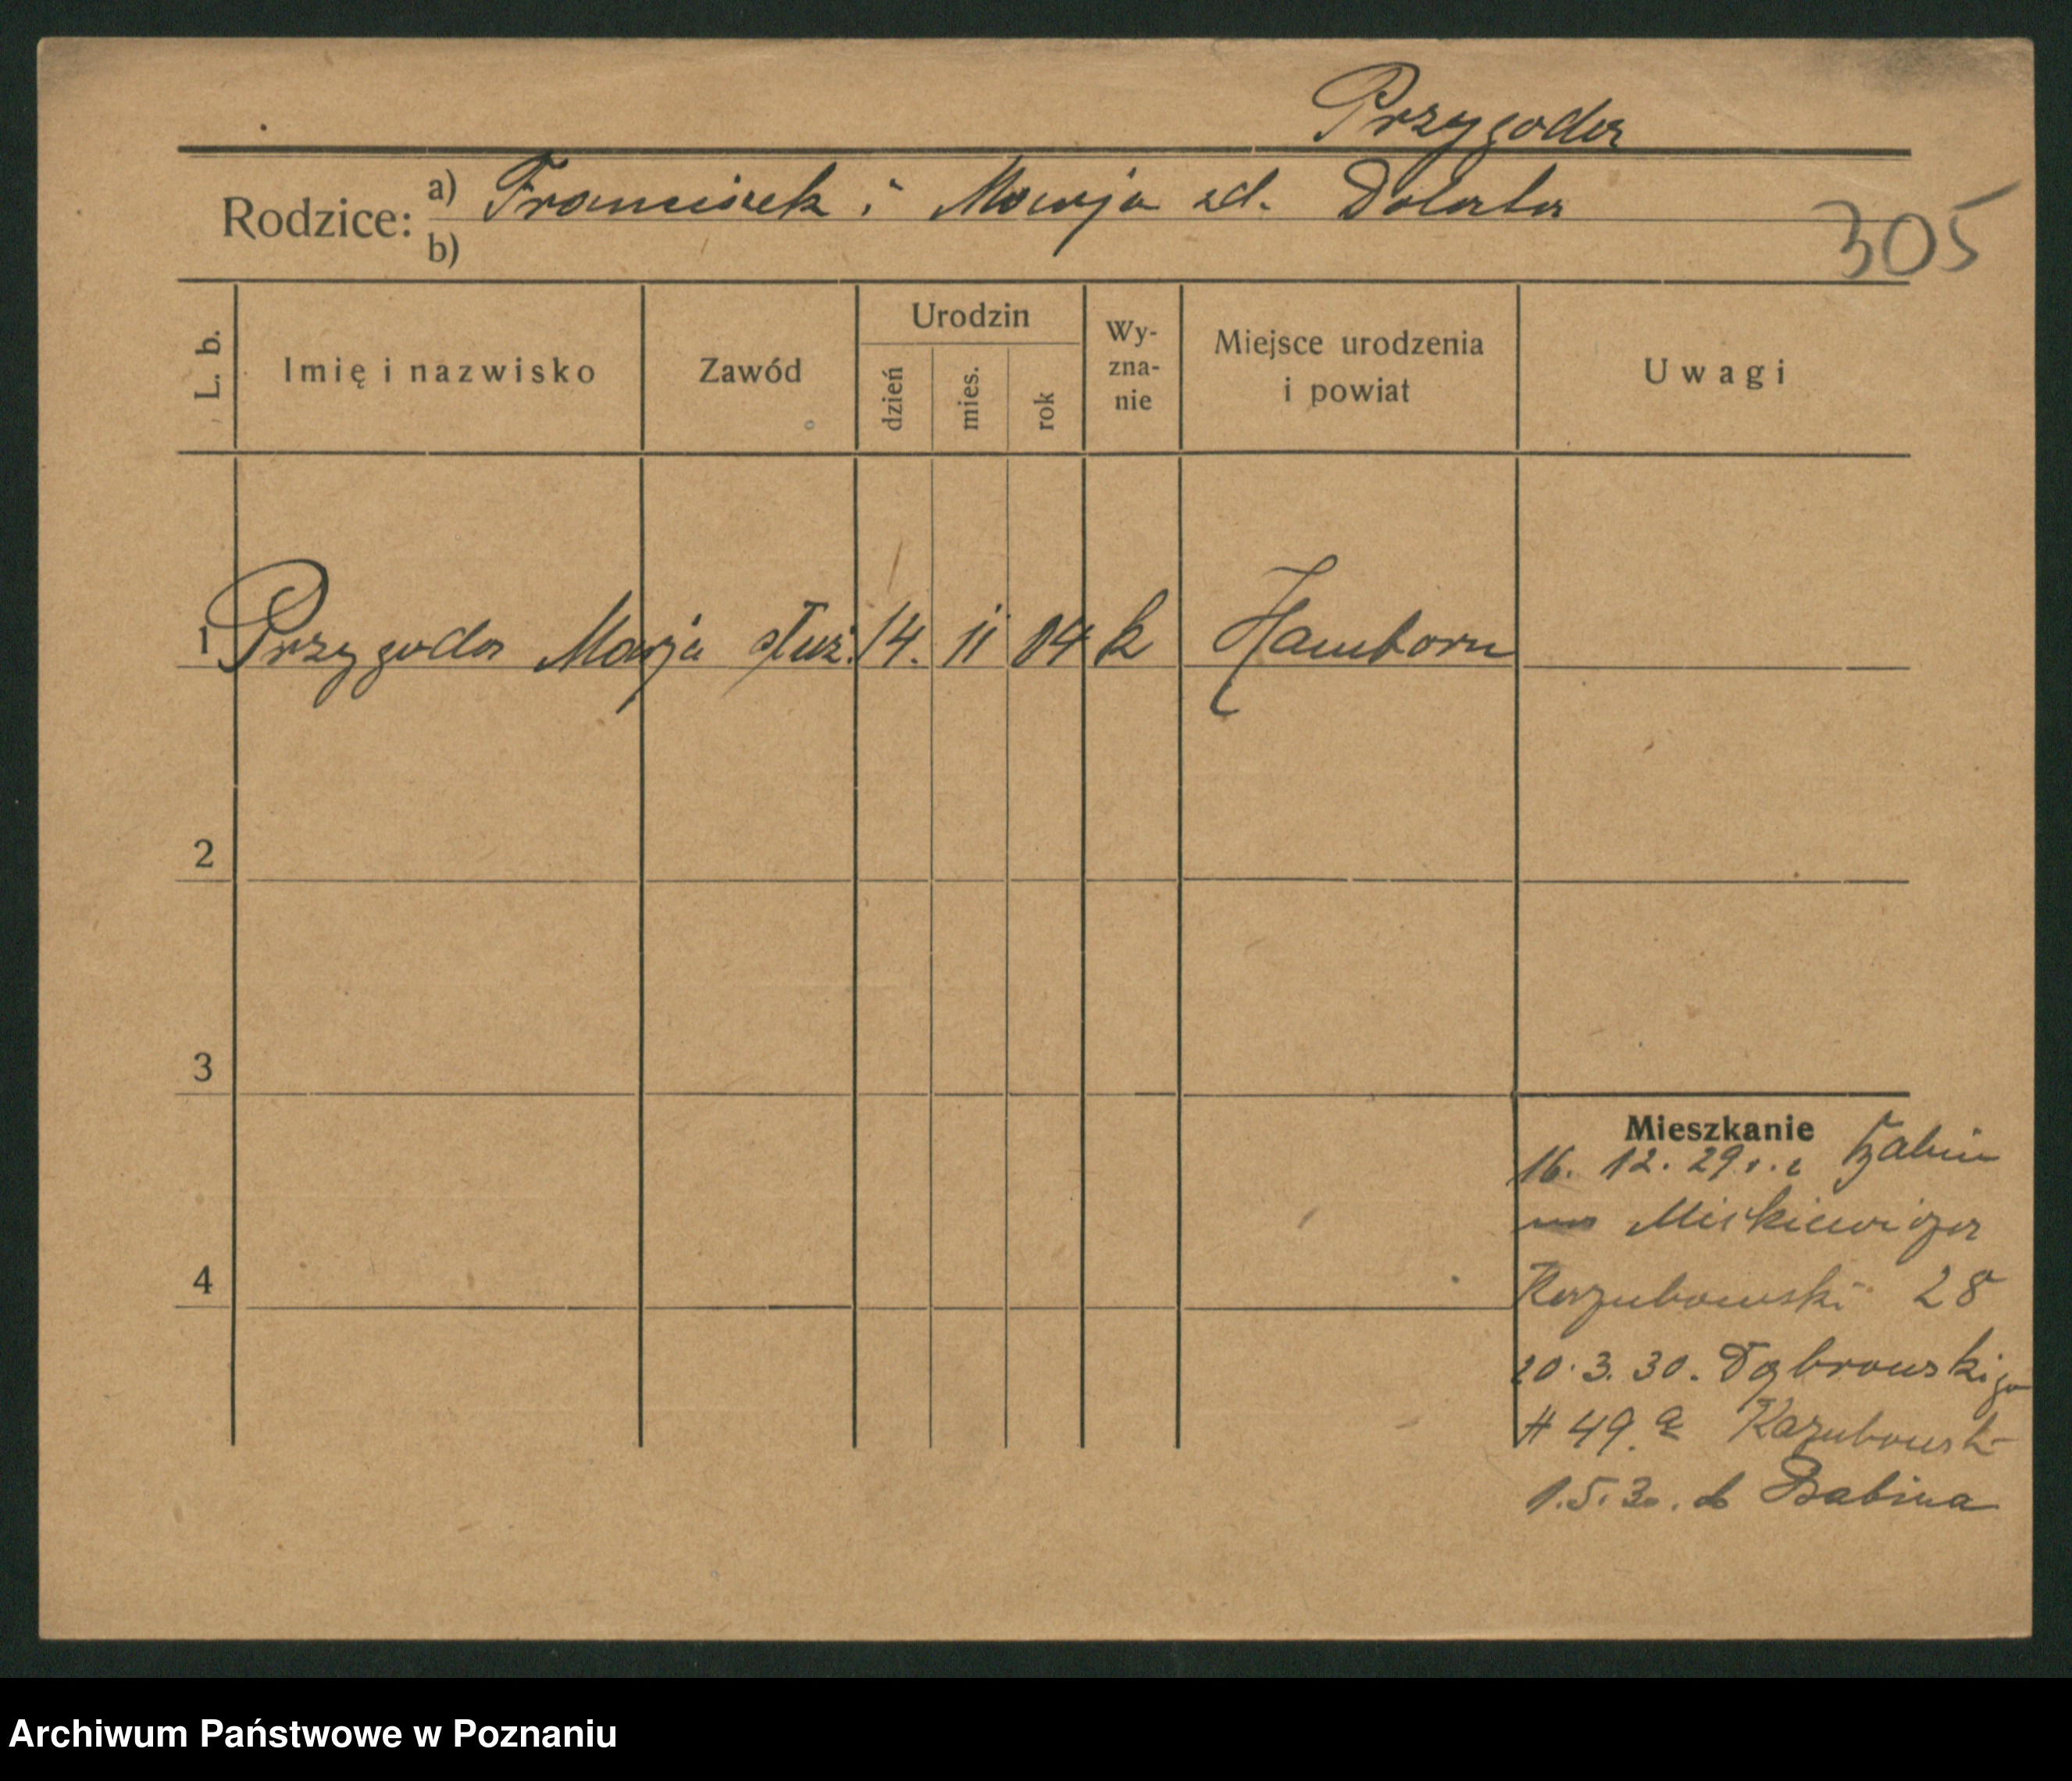 Przygoda
Rodzice: a) Franciszek i Marja zd. Dolata
b)
305
L. b. Imię i nazwisko Zawód Urodzin dzień mies. rok Wy-zna-nie Miejsce urodzenia i powiat Uwagi
1 Przygoda Marja służ. 14. 11 04 k Hamborn
2
3
4
Mieszkanie
16. 12. 29 r. z Babin
Kazubowski 28
20. 3. 30. Dąbrowskigo
49. a Kazubowski
1. 5. 30. do Babina
Archiwum Państwowe w Poznaniu